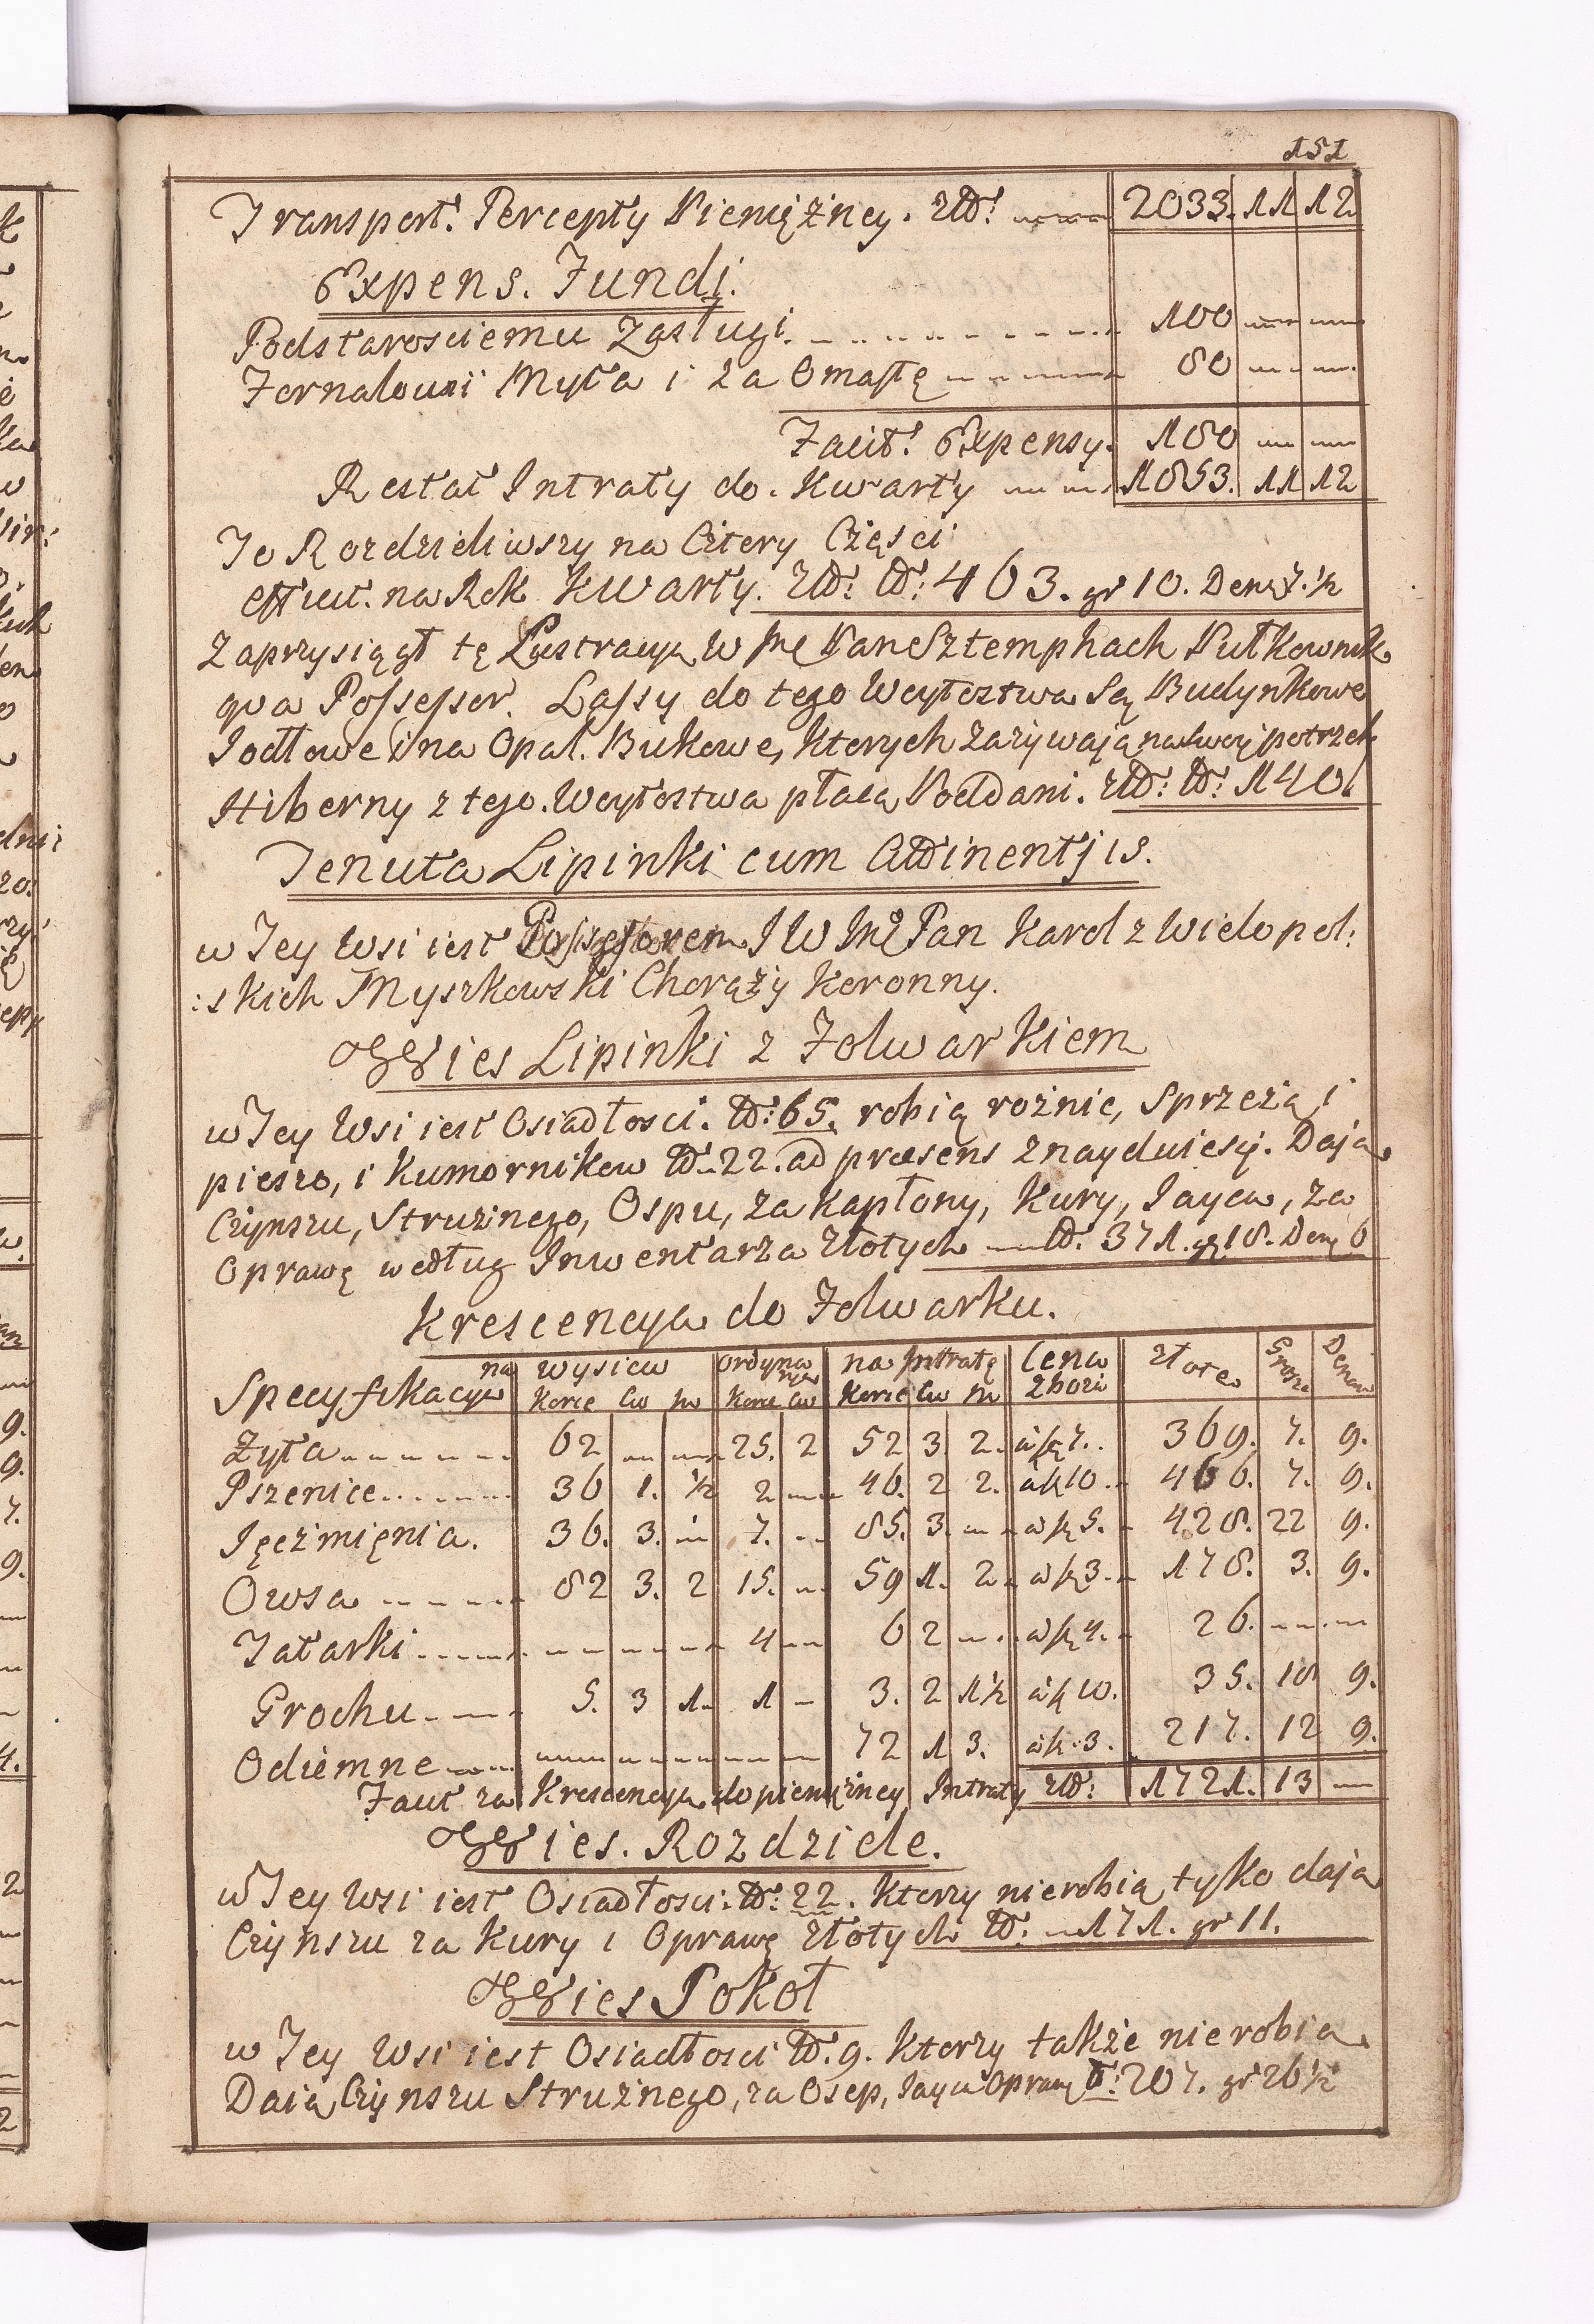 151
Transport. Percepty Pieniężney. Złł: 2033. 11 12
Expens. Fundi.
Podstarosciemu Zasługi. 100
Fornalowi Myta i za Omastę 80
Facit. Expensy. 180
Restat Intraty do. Kwarty 1853. 11 12
To Rozdzieliwszy na Cztery Częsci
efficit. na Rok Kwarty. Złł: N: 463. gr 10. Den. 7. ½
Zaprzysiągł tę Lustracyą W JMć Pan Sztemphach Pułkownik
qua Possessor. Lassy do tego Woytostwa Są Budynkowe
Jodłowe i na Opał. Bukowe, Ktorych zażywają na swoię potrzeb
Hiberny z tego. Woytostwa płacą Poddani. Złł: N: 140.
Tenuta Lipinki cum Attinentijs.
w Tey Wsi iest Possessorem J W JMć Pan Karol z Wielopol:
:skich Myszkowski Chorąży Koronny.
Wies Lipinki z Folwarkiem
w Tey Wsi iest Osiadłosci. N: 65. robią rożnie, Sprzężą i
pieszo, i Kumornikow N. 22. ad præsens znayduiesię. Dają
Czynszu, Strużnego, Ospu, za Kapłony, Kury, Jayca, za
Oprawę według Inwentarza złotych N. 371. gr. 18. Den. 6
Krescencya do Folwarku.
Specyfikacya na wysiew ordynaryą na Intratę Cena zboża złote Grosze Denar
Korce Ćw m Korce Ćw Korce Ćw m
Żyta 62 25. 2 52 3. 2. à f 7. 369. 7. 9.
Pszenice 36 1. ½ 2 46. 2 2. à f 10. 466. 7. 9.
Jęczmięnia. 36. 3. 7. 85. 3. à f 5. 428. 22 9.
Owsa 82 3. 2 15. 59 1. 2 à f 3. 178. 3. 9.
Tatarki 4 6 2 à f 4. 26.
Grochu 5. 3 1. 1 3. 2 1½ à f 10. 35. 18 9.
Odiemne 72 1 3. à f 3. 217. 12 9.
Facit za Krescencyą do pieniężney Intraty Złł: 1721. 13
Wies. Rozdziele.
w Tey Wsi iest Osiadłosci: N: 22. Ktorzy nierobią tylko dają
Czynszu za Kury i Oprawę złotych N. 171. gr 11.
Wies Sokoł
w Tey Wsi iest Osiadłosci N. 9. Ktorzy także nierobią
Daią Czynszu Strużnego, za Osep, Jayca Oprawę N: 207. gr 26½